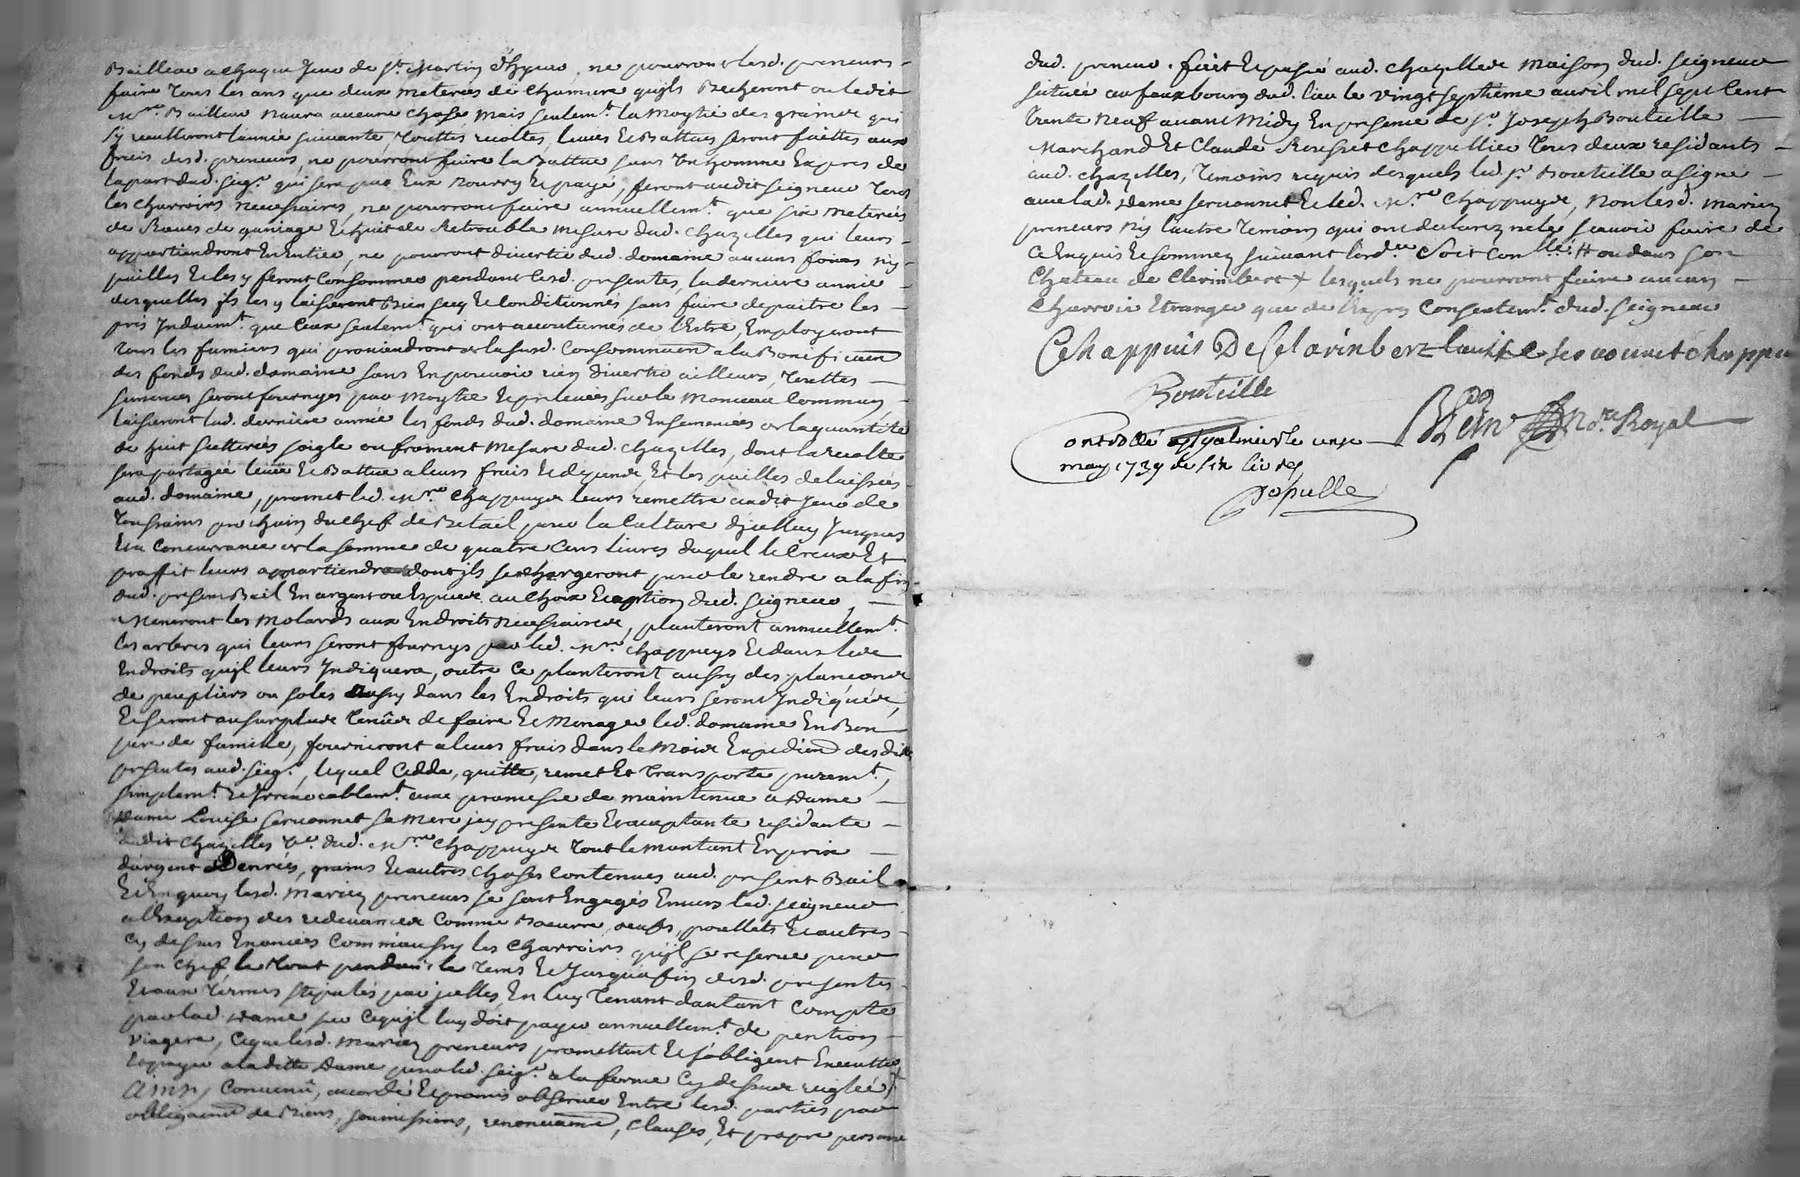 Bailleur a chaque jour de St. Martin d'hyver, ne pourront lesd. preneurs
faire tous les ans que deux meterées de chenevière quils Becheront ou ledit
Mre. Bailleur n'aura aucune chose mais seulemt. la moytié des graines qui
s'y ceuilleront l'année suivante, touttes recoltes, levées Et Battues seront faittes aux
frais desd. preneurs, ne pourront faire la Battue sans un homme Expres de
la part dud. seigr. qui sera par Eux nourry Et payé, feront audit seigneur tous
les charroirs necessaires, ne pourront faire annuellemt. que six meterées
de Raves de guerage Et huit de Retrouble mesure dud. chazelles qui leurs
appartiendront En Entier, ne pourront divertir dud. domaine aucuns foins ny
pailles Et les y feront consommer pendant lesd. presentes, la derniere année
desquelles ils les y laisseront Bien secq Et conditionnés sans faire depaitre les
prés Induemt. que Ceux seulemt. qui ont accoutumés de l'Estre, Employeront
tous les fumiers qui proviendront de la susd. Consommaon a la Boneficaon
des fonds dud. domaine sans En pouvoir rien divertir ailleurs, touttes
semences seront fournyes par moytié Et prelevées sur le monceau Commun
laisseront lad. derniere année les fonds dud. domaine Ensemencés de la quantité
de huit setterées soigle ou froment mesure dud. chazelles, dont la recolte
sera partagée levée Et Battue a leurs frais Et depens, Et les pailles delaissées
aud. domaine, promet led. Mre. Chappuys leurs remettre audit jour de
Toussains prochain du chef de Betail pour la Culture d'jcelluy Jusques
Et a Concurrance de la somme de quatre Cens livres duquel le Creux Et
proffit leurs appartiendra dont jls se chargeront pour le rendre a la fin
dud. present Bail En argent ou Espece au choix Et option dud. seigneur,
Meneront les Molards aux Endroits necessaires, planteront annuellemt.
les arbres qui leurs seront fournys par led. Mre. Chappuys Et dans les
Endroits qu'jl leurs Jndiquera, outre ce planteront aussy des plançons
de peupliers ou soles aussy dans les Endroits qui leurs seront Jndiqués,
Et seront au surplus tenûs de faire Et menager led. domaine En Bon
pere de famille, fourniront a leurs frais dans le mois Expedion des dittes
presentes aud. seigr., lequel Cedde, quitte, remet Et transporte puremt.,
simplemt. Et Jrrevocablemt. avec promesse de maintenue a dame
dame Louise servonnet sa mere jcy presente Et acceptante residante
audit chazelles Ve. dud. Mre. Chappuys tout le montant En prix
d'argent Denrées, grains Et autres choses contenues aud. present Bail
Et En quoy lesd. mariez preneurs se sont Engagés Envers led. seigneur
a l'Exception des redevances comme Beurre, oeufs, poullets Et autres
cy dessus Enoncées comm'aussy les charroirs qu'jl se reserve pour
son chef le tout pendant le tems Et Jusqu'a fin desd. presentes
Et aux termes stipulés par jcelles, En luy tenant d'autant compte
par lad. dame sur ce qu'jl luy doit payer annuellemt. de pention
viagere, Ce que lesd. mariez preneurs promettent Et s'obligent Executter
Et payer a laditte dame pour led. seigr. a la forme cy dessus reiglée
Ainsy Convenû, accordé Et promis observer Entre lesd. parties par
obligaon de Biens, soumissions, renonciaon, clauses, Et propre personne
dud. preneur. fait Et passé aud. chazelles maison dud. seigneur
située au fauxbourg dud. lieu le vingt septieme avril mil sept Cent
trente neuf avant Midy En presence de Sr. Joseph Bouteille
Marchand Et Claude Rousset chappellier tous deux residants
aud. chazelles, temoins requis desquels led. Sr. Bouteille a signé
avec lad. dame servonnet Et led. Mre. Chappuys, non lesd. mariez
preneurs ny l'autre temoin qui ont declarez ne le scavoir faire de
ce Enquis Et sommez suivant l'ordce. Soit Conllé. # ou dans son
Chateau de Clerimbert + lesquels ne pourront faire aucun
Charroir Etranger que de l'Exprès Consentemt. dud. seigneur
Chappuis De Clarinbert Louise servonnet chappu
Bouteille
Blein Nore. Royal
controllé a St galmier le unze
may 1739 de six livres
Populle